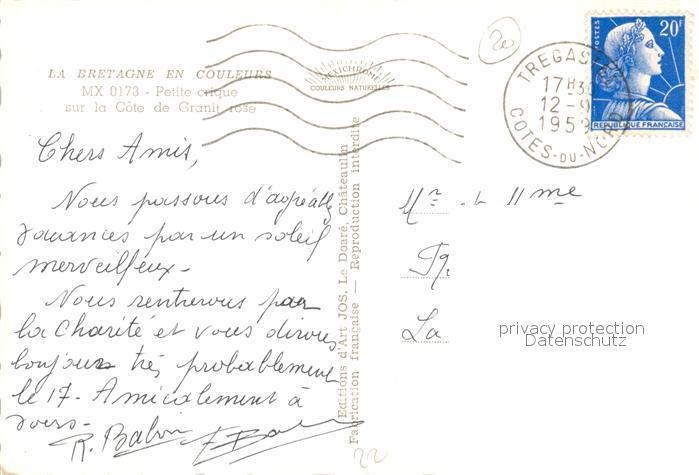 LA BRETAGNE EN COULEURS
MX 0173 - Petite crique
sur la Côte de Granit rose
ARTICHROME
COULEURS NATURELLES
20
POSTES
20F
REPUBLIQUE FRANÇAISE
TREGASTEL
17H30
12-9
1959
COTES-DU-NORD
Chers Amis,
Nous passons d'agréables
vacances par un soleil
merveilleux-
Nous rentrerons par
la Charité et vous dirons
bonjour très probablement
le 17- Amicalement à
vous-
R. Babin
Editions d'Art JOS. Le Doaré, Châteaulin
Fabrication française — Reproduction interdite
Mr et Mme
La
privacy protection
Datenschutz
22